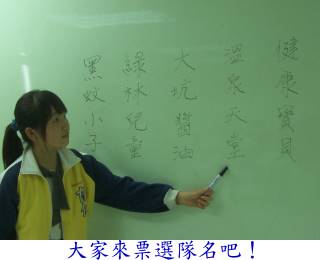 健康寶貝
溫泉天堂
大坑醬油
綠林兒童
黑蚊小子
大家來票選隊名吧！